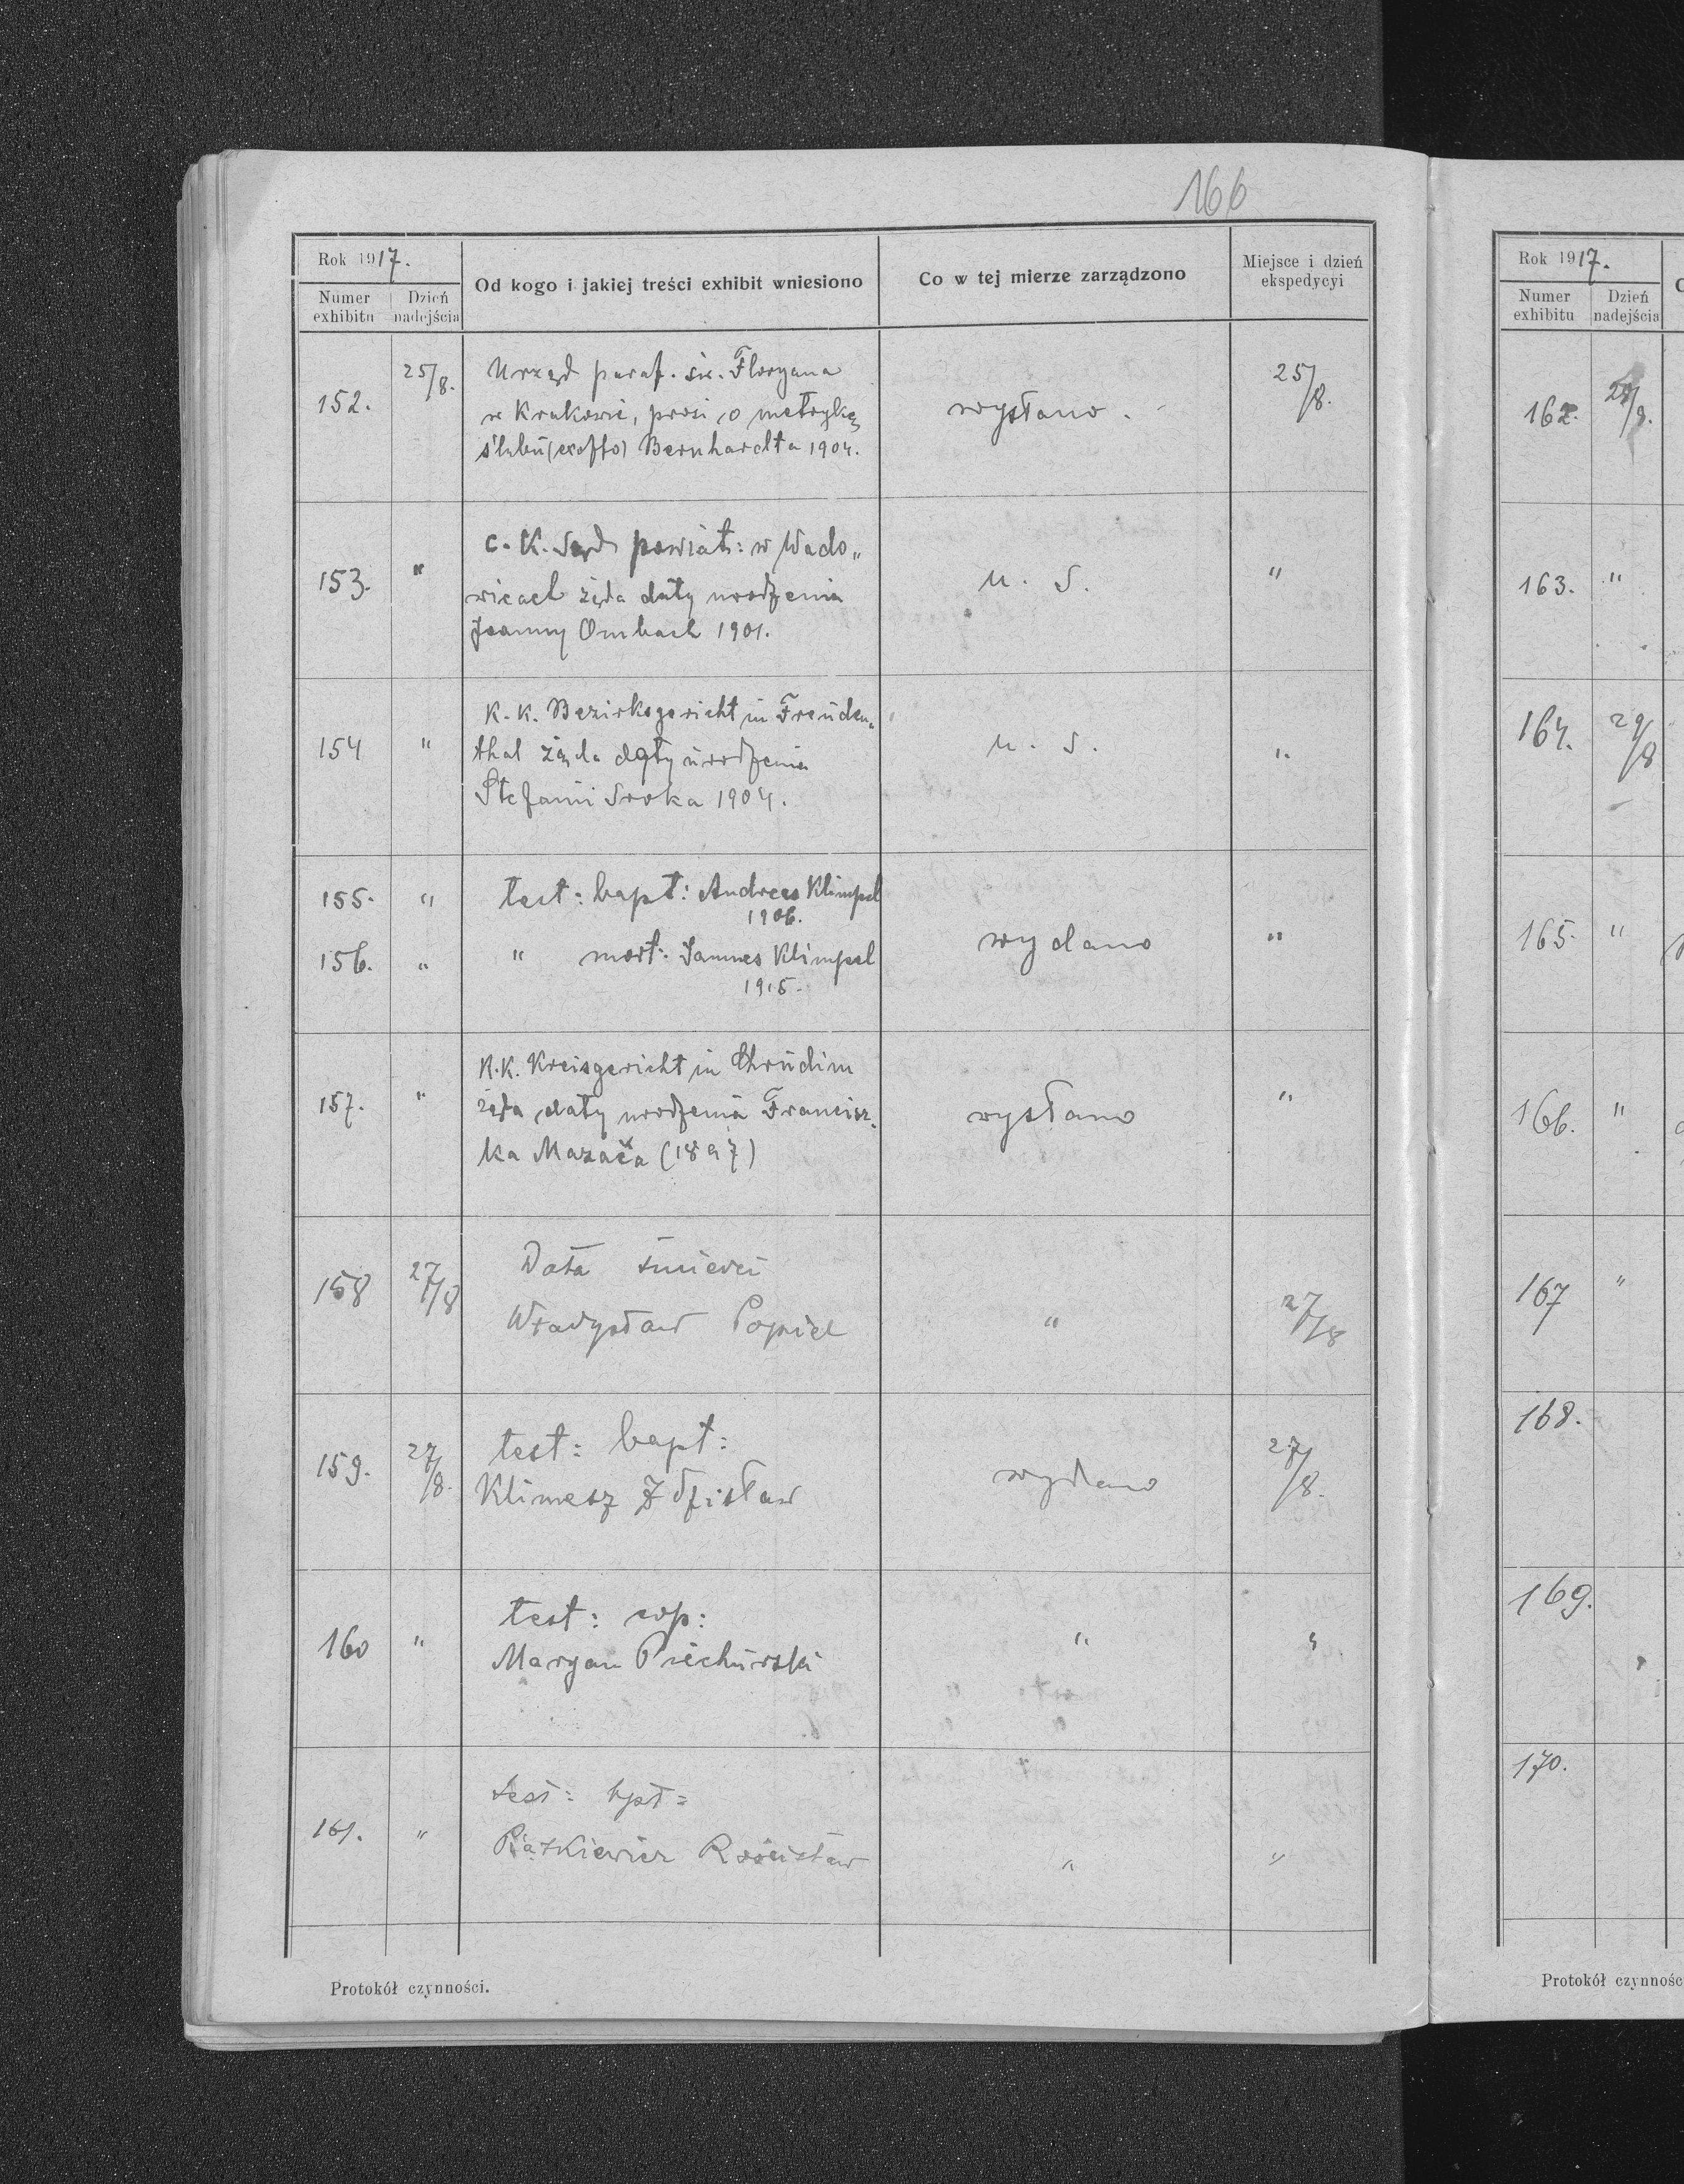 166
Rok 1917.
Numer exhibitu
Dzień nadejścia
Od kogo i jakiej treści exhibit wniesiono
Co w tej mierze zarządzono
Miejsce i dzień ekspedycyi
152. 25/8. Urząd paraf. św. Floryana wysłano. 25/8.
w Krakowie, prosi o metrykę
ślubu (ex offo) Bernhardta 1904.
153. " c. K. Sąd powiat: w Wado„ u. s. "
wicach żąda daty urodzenia
Joanny Ombach 1901.
154 " K. K. Bezirksgericht in Freuden„ u. s. "
thal żąda daty urodzenia
Stefanii Sroka 1904.
155. " test: bapt: Andreas Klimpel
1906.
156. " " mort: Joannes Klimpel wydano "
1915.
157. " K.K. Kreisgericht in Chrudim wysłano "
żąda daty urodzenia Francisz„
ka Mazača (1897)
158 27/8 Data śmierci
Władysław Popiel " 27/8
159. 27/8. test: bapt: wydano 27/8.
Klimesz Zdzisław
160 " test: cop: " "
Maryan Piechurski
161. " test: bpt: " "
Piątkiewicz Rościsław
Protokół czynności.
Rok 1917.
Numer exhibitu
Dzień nadejścia
162. 28/8.
163. "
164. 29/8
165. "
166. "
167 "
168.
169.
170.
Protokół czynnośc